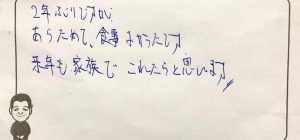 2年ぶりですが
あらためて、食事よかったです
来年も家族で これたらと思います